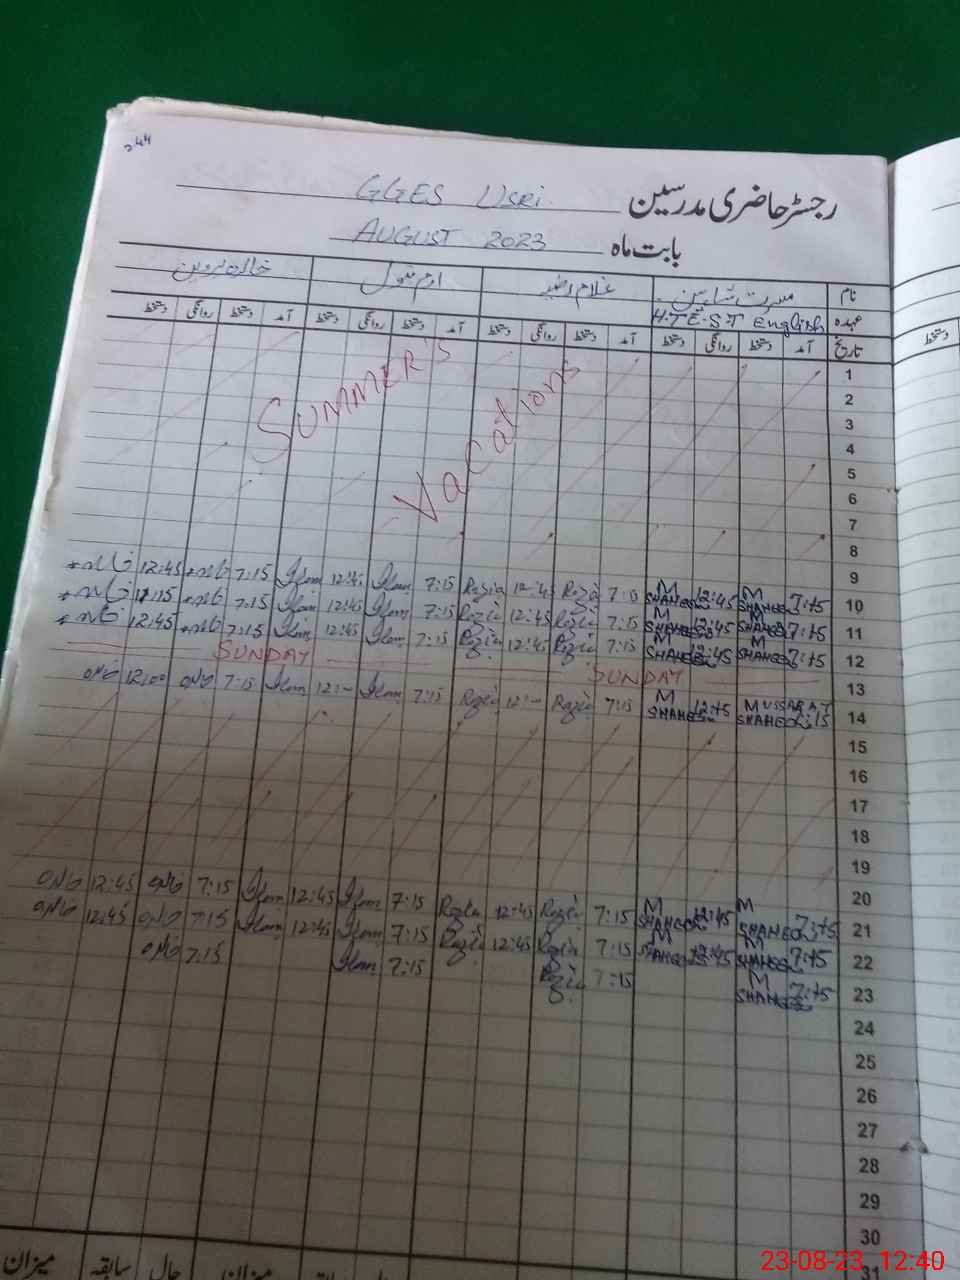 244
GGES Usri. رجسٹر حاضری مدرسین
AUGUST 2023 بابت ماہ
نام مسرت شاہین غلام رضیہ ارم بتول خالدہ پروین
عہدہ H.T E.S.T English
تاریخ آمد دستخط روانگی دستخط آمد دستخط روانگی دستخط آمد دستخط روانگی دستخط آمد دستخط روانگی دستخط
SUMMER'S
Vacations
1
2
3
4
5
6
7
8
9
12:45 7:15 12:45 7:15 Razia 12:45 Razia 7:15 M SHAHEEN 12:45 M SHAHEEN 7:15 10
7:15 12:45 7:15 Razia 12:45 Razia 7:15 M SHAHEEN 12:45 M SHAHEEN 7:15 11
12:45 7:15 12:45 7:15 Razia 12:45 Razia 7:15 M SHAHEEN 12:45 M SHAHEEN 7:15 12
SUNDAY SUNDAY 13
12:00 7:15 12:— 7:15 Razia 12:— Razia 7:15 M SHAHEEN 12:45 MUSSARAT SHAHEEN 7:15 14
15
16
17
18
19
20
12:45 7:15 12:45 7:15 Razia 12:45 Razia 7:15 M SHAHEEN 12:45 M SHAHEEN 7:15 21
12:45 7:15 12:45 7:15 Razia 12:45 Razia 7:15 M SHAHEEN 12:45 M SHAHEEN 7:15 22
7:15 7:15 Razia 7:15 M SHAHEEN 7:15 23
24
25
26
27
28
29
30
31
میزان سابقہ حال میزان
23-08-23 12:40